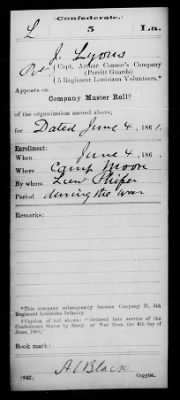 Confederate.
L 5 La.
J. Lyons
Pvt, Capt. Arthur Connor's Company
(Perritt Guards)
5 Regiment Louisiana Volunteers.*
Appears on
Company Muster Roll†
of the organization named above,
for Dated June 4, 1861.
Enrollment:
When June 4, 186 .
Where Camp Moore
By whom Lieu Phifer
Period during the war
Remarks:
*This company subsequently became Company H, 5th
Regiment Louisiana Infantry.
†Caption of roll shows: "Ordered into service of the
Confederate States by Secty. of War from the 4th day of
June, 1861."
Book mark:
(642) A L Black
Copyist.